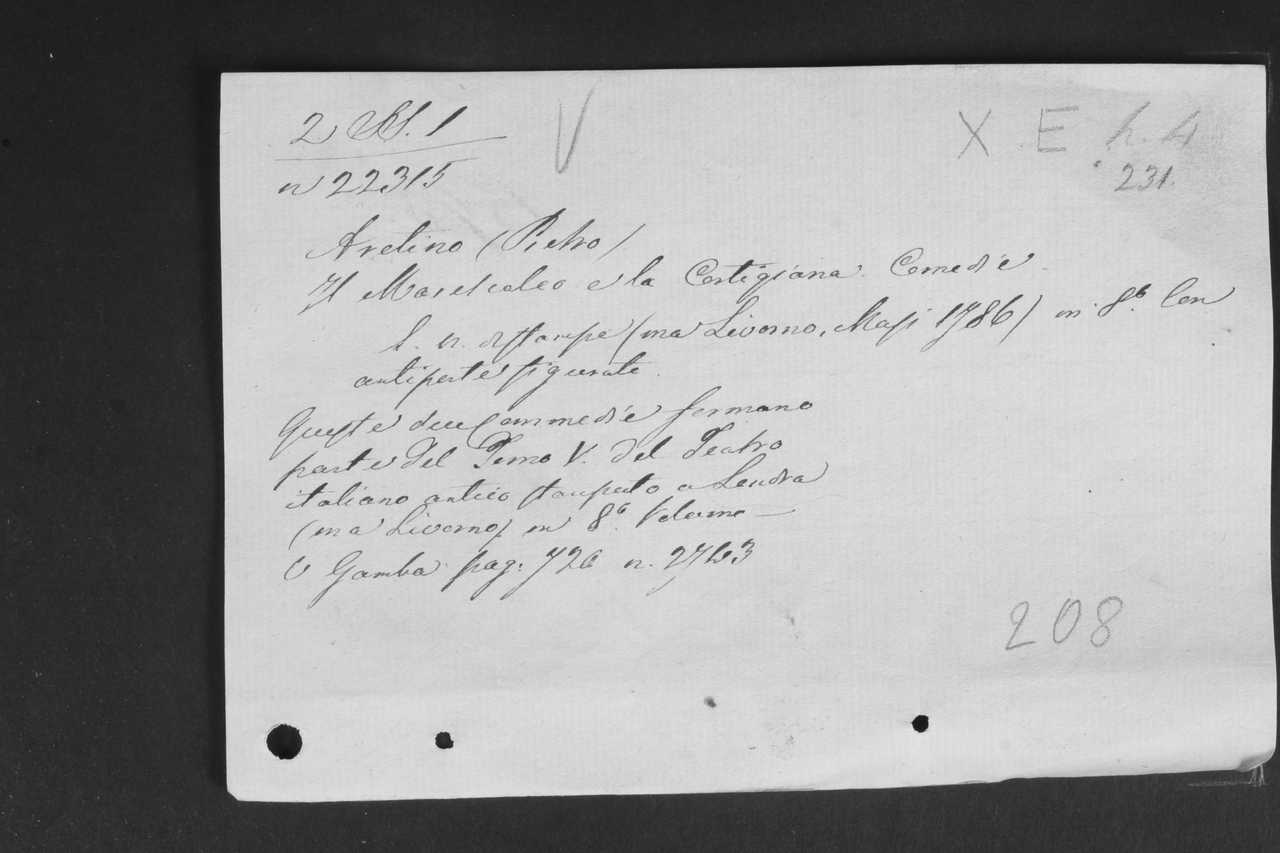 2 M. 1
V
X E h. 4
231.
n 22315
Aretino (Pietro)
Il Marescalco e la Cortigiana Comedie
S. n. di stampe (ma Livorno, Masi 1786) in 8º. Con
antiporte figurate.
Queste due Commedie formano
parte del Tomo V. del Teatro
italiano antico stampato a Londra
(ma Livorno) in 8º. Volume
V Gamba pag: 726 n. 2763
208